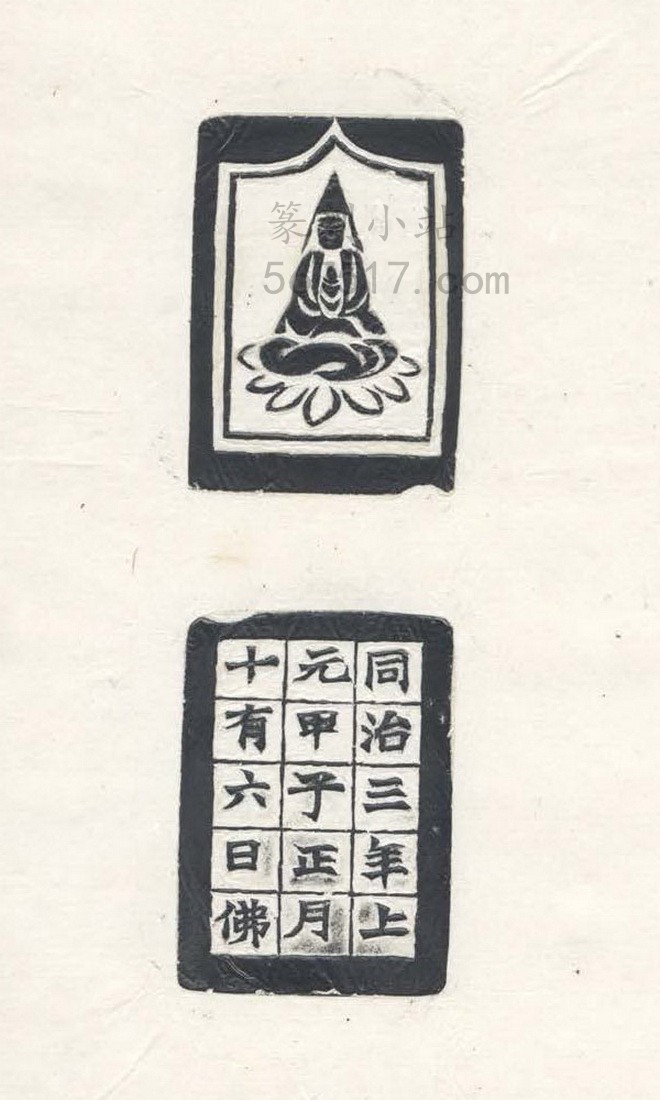 篆刻小站
同治三年上
元甲子正月
十有六日佛